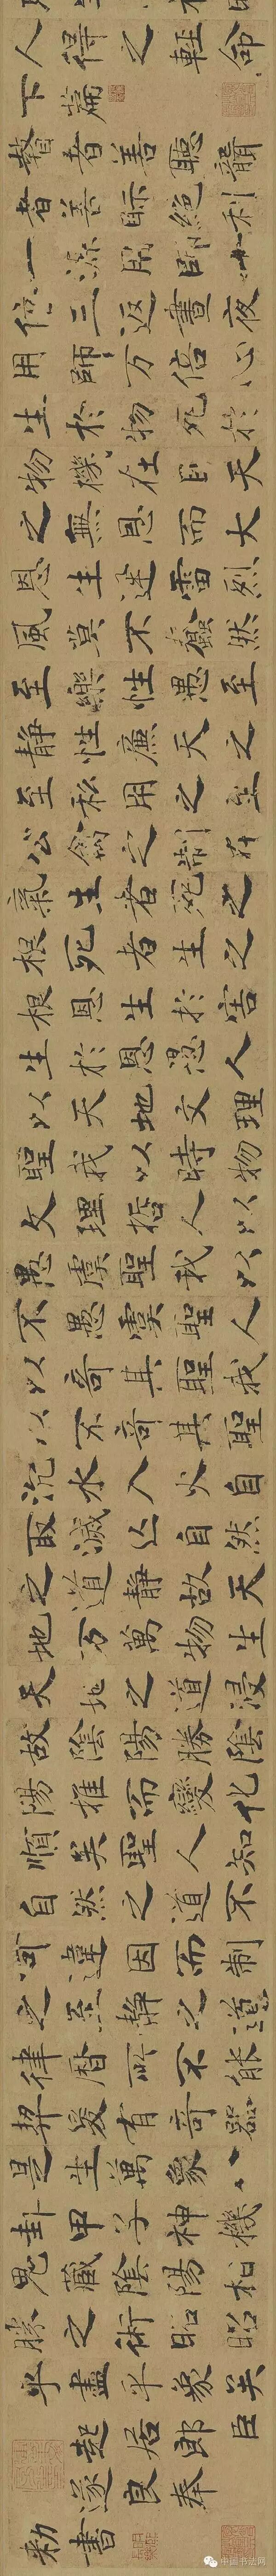 人得之輕命
下篇
瞽者善聽聾
者善眎絕利
一源用師十
倍三返晝夜
用師万倍心
生於物死於
物機在目天
之無恩而大
恩生迅雷烈
風莫不蠢然
至樂性愚至
靜性廉天之
至私用之至
公禽之制在
氣生者死之
根死者生之
根恩生於害
生於恩愚人
以天地文理
聖我以時物
文理哲人以
愚虞聖我以
不愚虞聖人
以奇其聖我
以不奇其聖
沉水入火自
取滅亡自然
之道靜故天
地万萬物生
天地之道浸
故陰陽勝陰
陽推而變化
順矣聖人知
自然之道不
可違因而制
之至靜之道
律曆所不能
契爰有奇器
是生萬象八
卦甲子神機
鬼藏陰陽相
勝之術昭昭
乎盡乎象矣
起居郎臣
遂良奉
敕書
中国书法网